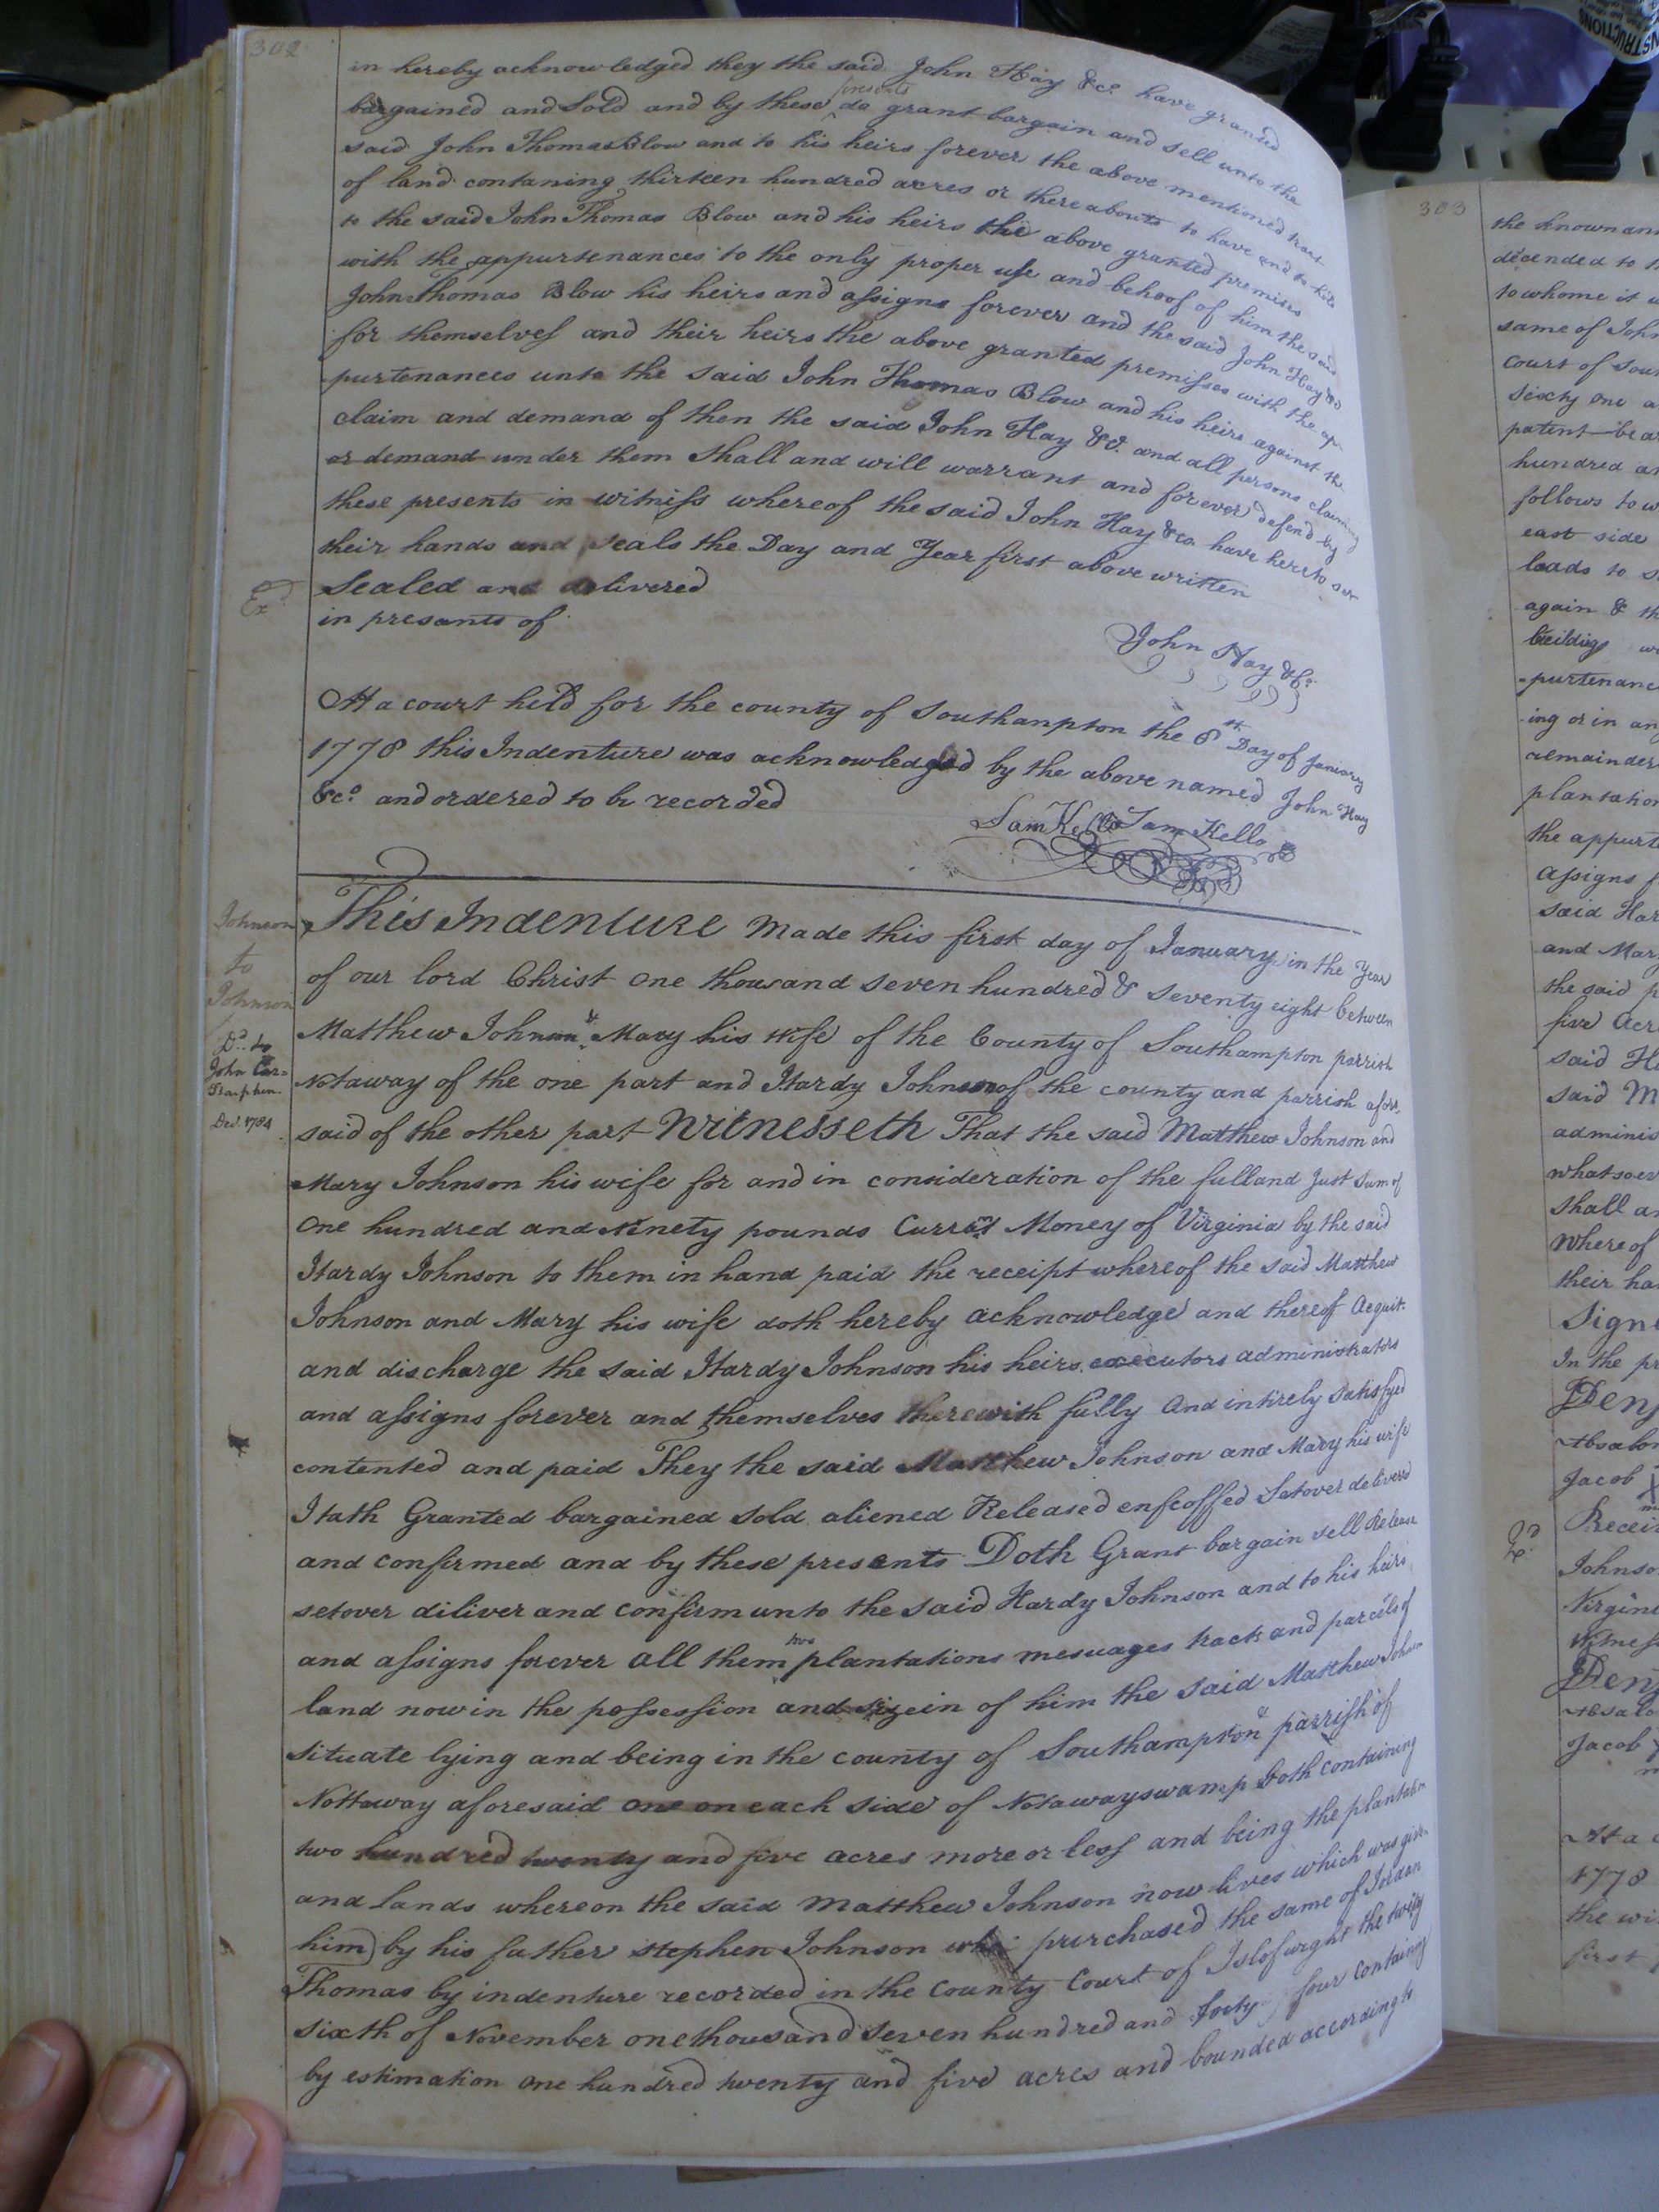 302
in hereby acknowledged they the said John Hay &Co. have granted
bargained and Sold and by these presents do grant bargain and sell unto the
said John Thomas Blow and to his heirs forever the above mentioned tract
of land contaning thirteen hundred acres or thereabouts to have and to hold
to the said John Thomas Blow and his heirs the above granted premises
with the appurtenances to the only proper use and behoof of him the said
John Thomas Blow his heirs and assigns forever and the said John Hay &Co
for themselves and their heirs the above granted premisses with the ap-
-purtenances unto the said John Thomas Blow and his heirs against the
claim and demand of then the said John Hay &C. and all persons claiming
or demand under them Shall and will warrant and forever defend by
these presents in witniss whereof the said John Hay &Co have hereto set
their hands and seals the Day and Year first above written
Sealed and delivered
Exd
in presants of
John Hay &Co.
At a court held for the county of Southampton the 8th Day of January
1778 this Indenture was acknowledged by the above named John Hay
&Co. and ordered to be recorded
Sam Kello Sam Kello
Johnson
to
Johnson
Dd. to
John Car=
Starphen.
Decr. 1784
This Indenture Made this first day of January in the Year
of our lord Christ One thousand seven hundred & seventy eight between
Matthew Johnson & Mary his wife of the County of Southampton parrish
Notaway of the one part and Hardy Johnson of the county and parrish afore,
said of the other part Witnesseth That the said Matthew Johnson and
Mary Johnson his wife for and in consideration of the full and Just Sum of
One hundred and Ninety pounds Currant Money of Virginia by the said
Hardy Johnson to them in hand paid the receipt whereof the said Matthew
Johnson and Mary his wife doth hereby acknowledge and thereof Acquit.
and discharge the said Hardy Johnson his heirs executors administrators
and assigns forever and themselves therewith fully And intirely satisfyed
contented and paid They the said Matthew Johnson and Mary his wife
Hath Granted bargained sold aliened Released enfeoffed Setover deliverd
and confirmed and by these presents Doth Grant bargain sell Release
setover diliver and confirm unto the said Hardy Johnson and to his heirs
and assigns forever all them two plantations mesuages tracts and parcels of
land now in the possession and sizein of him the said Matthew Johnson
situate lying and being in the county of Southampton & parrish of
Nottoway aforesaid one on each side of Notaway swamp both containing
two hundred twenty and five acres more or less and being the plantation
and lands whereon the said Matthew Johnson now lives which was given
him by his father Stephen Johnson who prurchased the same of Jordan
Thomas by indenture recorded in the County Court of Isle of wight the twenty
sixth of November one thousand seven hundred and forty four containing
by estimation one hundred twenty and five acres and bounded according to
303
the known an
decended to
to whome it
same of John
Court of Sou
Sixty one a
patent bear
hundred an
follows to w
east side
leads to s
again & th
buildings
-purtenanc
-ing or in an
remainder
plantation
the appurt
Assigns f
said Har
and Mary
the said p
five Acr
said Ha
said M
adminis
whatsoev
shall a
Whereof
their ha
Sign
In the pr
Absalo
Jacob
Receiv
Johnso
Virgini
Witness
Absalo
Jacob
At a
1778
the wi
first